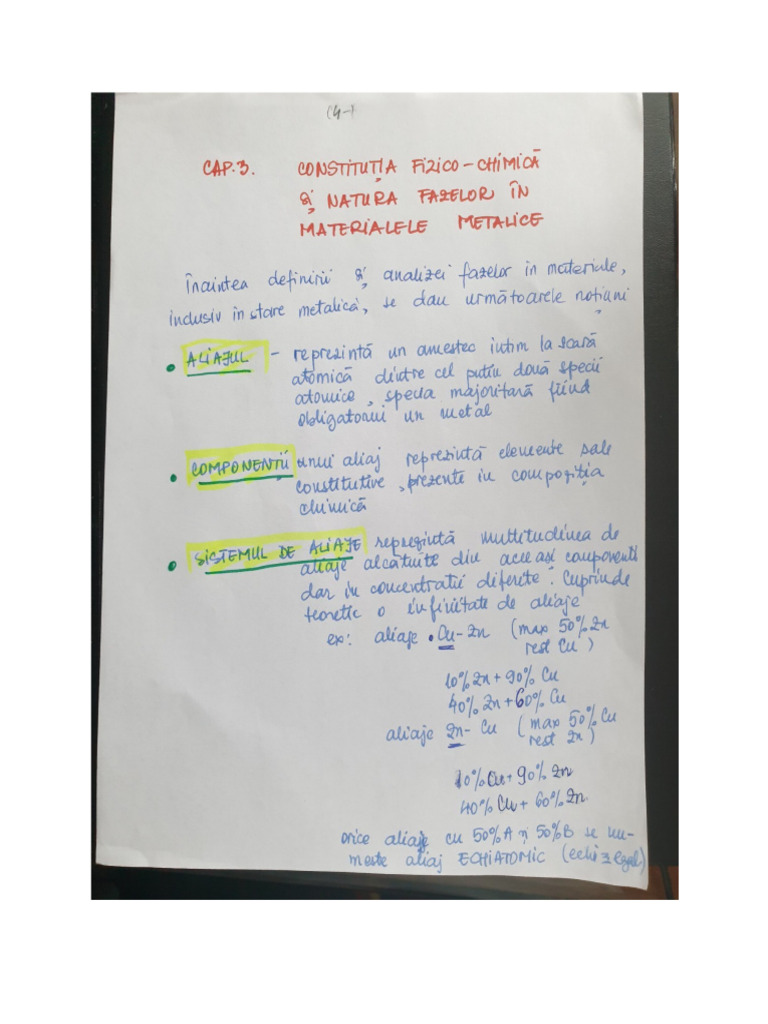 (4-)
CAP.3. CONSTITUȚIA FIZICO-CHIMICĂ
ȘI NATURA FAZELOR ÎN
MATERIALELE METALICE
Înaintea definirii și analizei fazelor in materiale,
inclusiv in stare metalică, se dau următoarele noțiuni
• ALIAJUL - reprezintă un amestec intim la scară
atomică dintre cel putin două specii
atomice, specia majoritară fiind
obligatoriu un metal
• COMPONENȚII unui aliaj reprezintă elemente sale
constitutive, prezente in compoziția
chimică
• SISTEMUL DE ALIAJE reprezintă multitudinea de
aliaje alcătuite din aceeași componenti
dar in concentratii diferete. Cuprinde
teoretic o infinitate de aliaje
ex: aliaje • Cu-Zn (max 50% Zn
rest Cu)
10% Zn + 90% Cu
40% Zn + 60% Cu
aliaje Zn-Cu (max 50% Cu
rest Zn)
10% Cu + 90% Zn
40% Cu + 60% Zn
orice aliaje cu 50% A și 50% B se nu-
meste aliaj ECHIATOMIC (echi = egal)